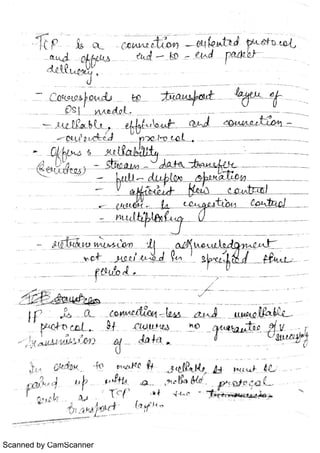 TCP is a connection - oriented protocol
and offers end - to - end packet
delivery.
- Corresponds to transport layer of
OSI model.
- reliable, efficient and connection -
oriented protocol.
- Offers reliability
(Services) - stream - data transfer
- full - duplex operation
- efficient flow control
- error & congestion control
- multiplexing
- retransmission if acknowledgment
not received in specified time
period.
IP is a connection-less and unreliable
protocol. It ensures no guarantee of
transmission of data.
successfully
In order to make it reliable, it must be
paired up with a reliable protocol
such as TCP at the
transport layer.
Scanned by CamScanner